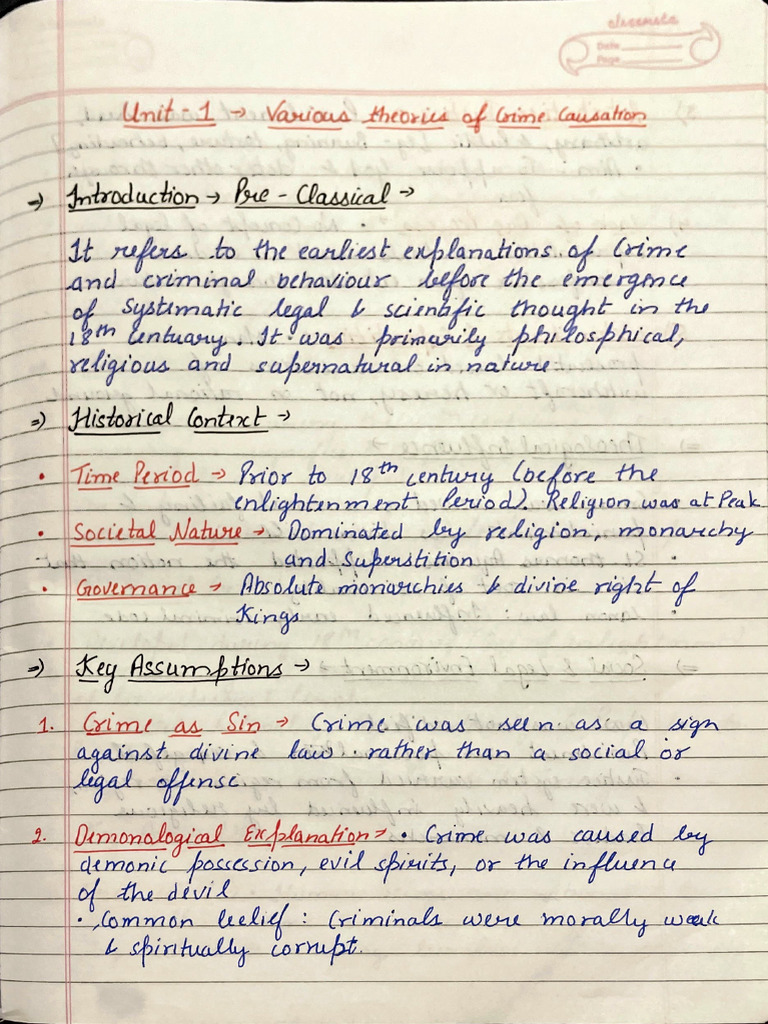 classmate
Date
Page
Unit - 1 → Various theories of Crime Causation
⇒ Introduction → Pre - Classical →
It refers to the earliest explanations of Crime
and criminal behaviour before the emergence
of systematic legal & scientific thought in the
18th Centuary. It was primarily philosphical,
religious and supernatural in nature
⇒ Historical Context →
• Time Period → Prior to 18th Century (before the
enlightenment Period). Religion was at Peak
• Societal Nature → Dominated by religion, monarchy
and Superstition
• Governance → Absolute monarchies & divine right of
Kings
⇒ Key Assumptions →
1. Crime as Sin → Crime was seen as a sign
against divine law rather than a social or
legal offense
2. Demonological Explanation → • Crime was caused by
demonic possession, evil spirits, or the influence
of the devil
• Common belief : Criminals were morally weak
& spiritually corrupt.